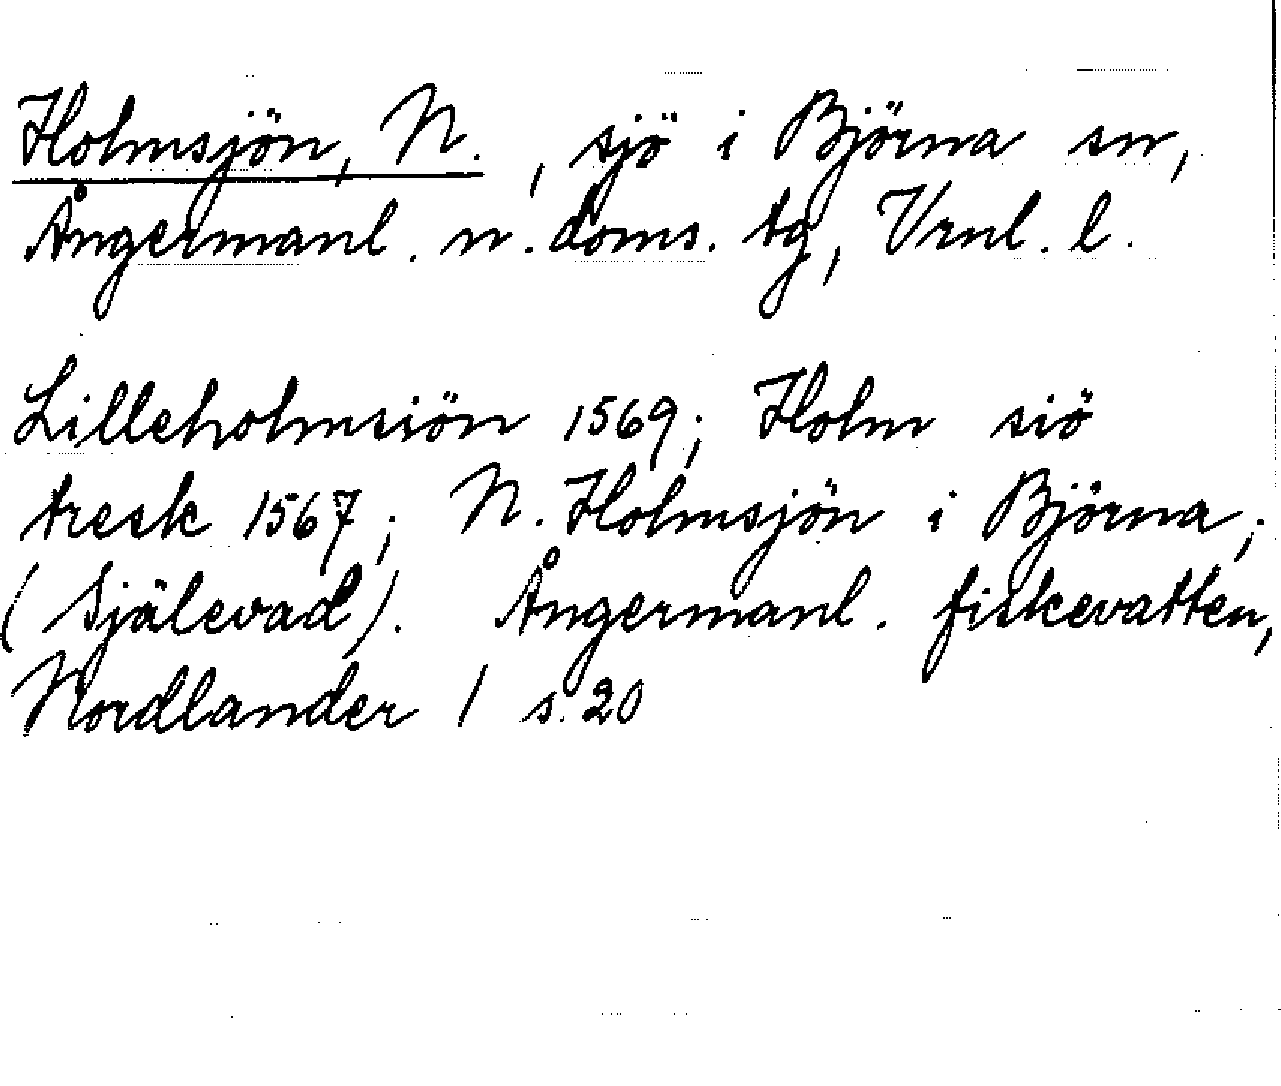 Holmsjön, N. , sjö i Björna sn,
Ångermanl. n. doms. tg, Vrnl. l.
Lilleholmsiön 1569; Holm siö
tresk 1567; N. Holmsjön i Björna;
(Själevad). Ångermanl. fiskevatten,
Nordlander / s. 20